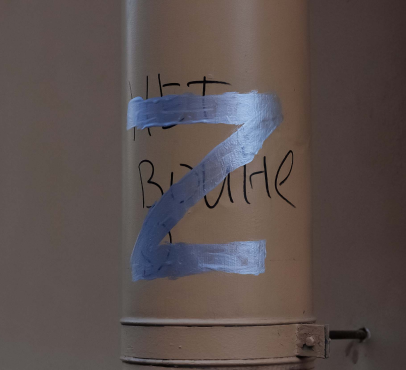 НЕТ
Войне
Z